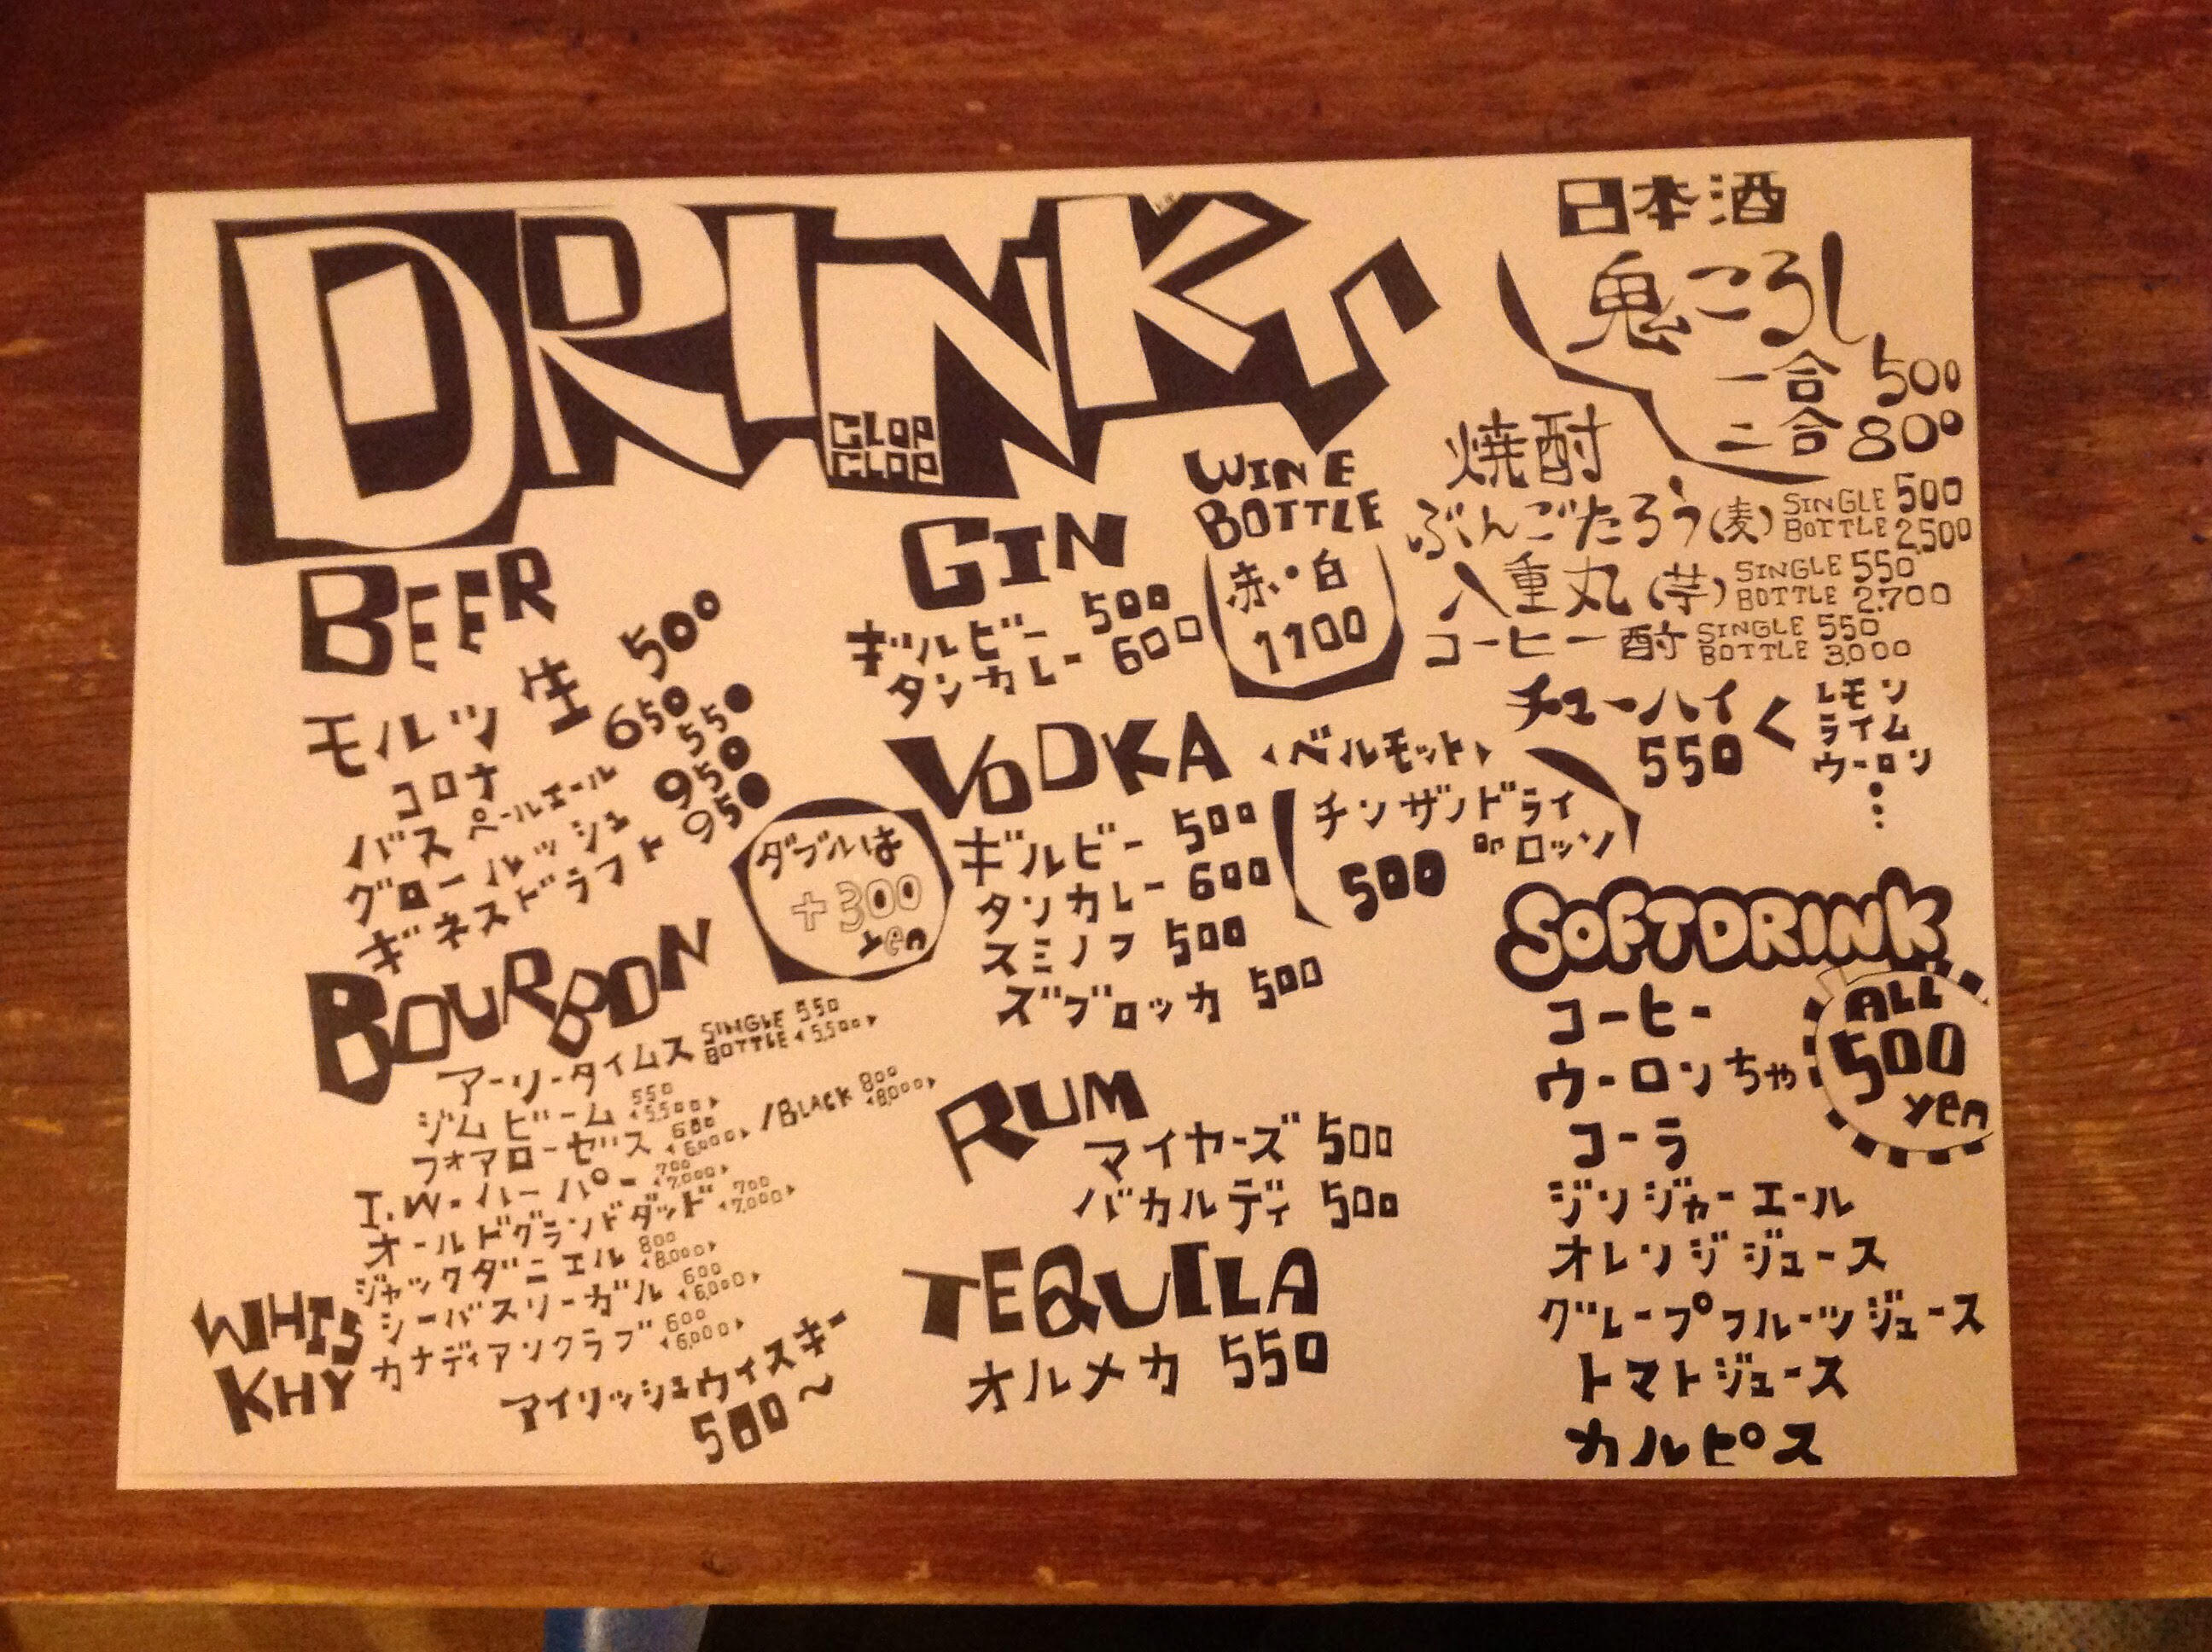 DRINK
CLOP
CLOP
BEER
モルツ 生 500
コロナ 650
バス ペールエール 550
グロールッシュ 950
ギネスドラフト 950
ダブルは
+300
yen
BOURBON
アーリータイムス SINGLE 550
BOTTLE ◂5,500▸
ジム ビーム 550
◂5,500▸
フォアローゼス 600
◂6,000▸ /BLACK 800
◂8,000▸
I.W.ハーパー 700
◂7,000▸
オールドグランドダッド 700
◂7,000▸
ジャックダニエル 800
◂8,000▸
WHIS
KHY
シーバスリーガル 600
◂6,000▸
カナディアンクラブ 600
◂6,000▸
アイリッシュウィスキー
500～
GIN
ギルビー 500
タンカレー 600
WINE
BOTTLE
赤・白
1100
VODKA
ギルビー 500
タンカレー 600
スミノフ 500
ズブロッカ 500
◂ベルモット▸
チンザノドライ
or ロッソ
500
RUM
マイヤーズ 500
バカルディ 500
TEQUILA
オルメカ 550
日本酒
鬼ころし
一合 500
二合 800
焼酎
ぶんごたろう(麦) SINGLE 500
BOTTLE 2,500
八重丸(芋) SINGLE 550
BOTTLE 2,700
コーヒー酎 SINGLE 550
BOTTLE 3,000
チューハイ
550
レモン
ライム
ウーロン
SOFTDRINK
ALL
500
yen
コーヒー
ウーロンちゃ
コーラ
ジンジャーエール
オレンジジュース
グレープフルーツジュース
トマトジュース
カルピス